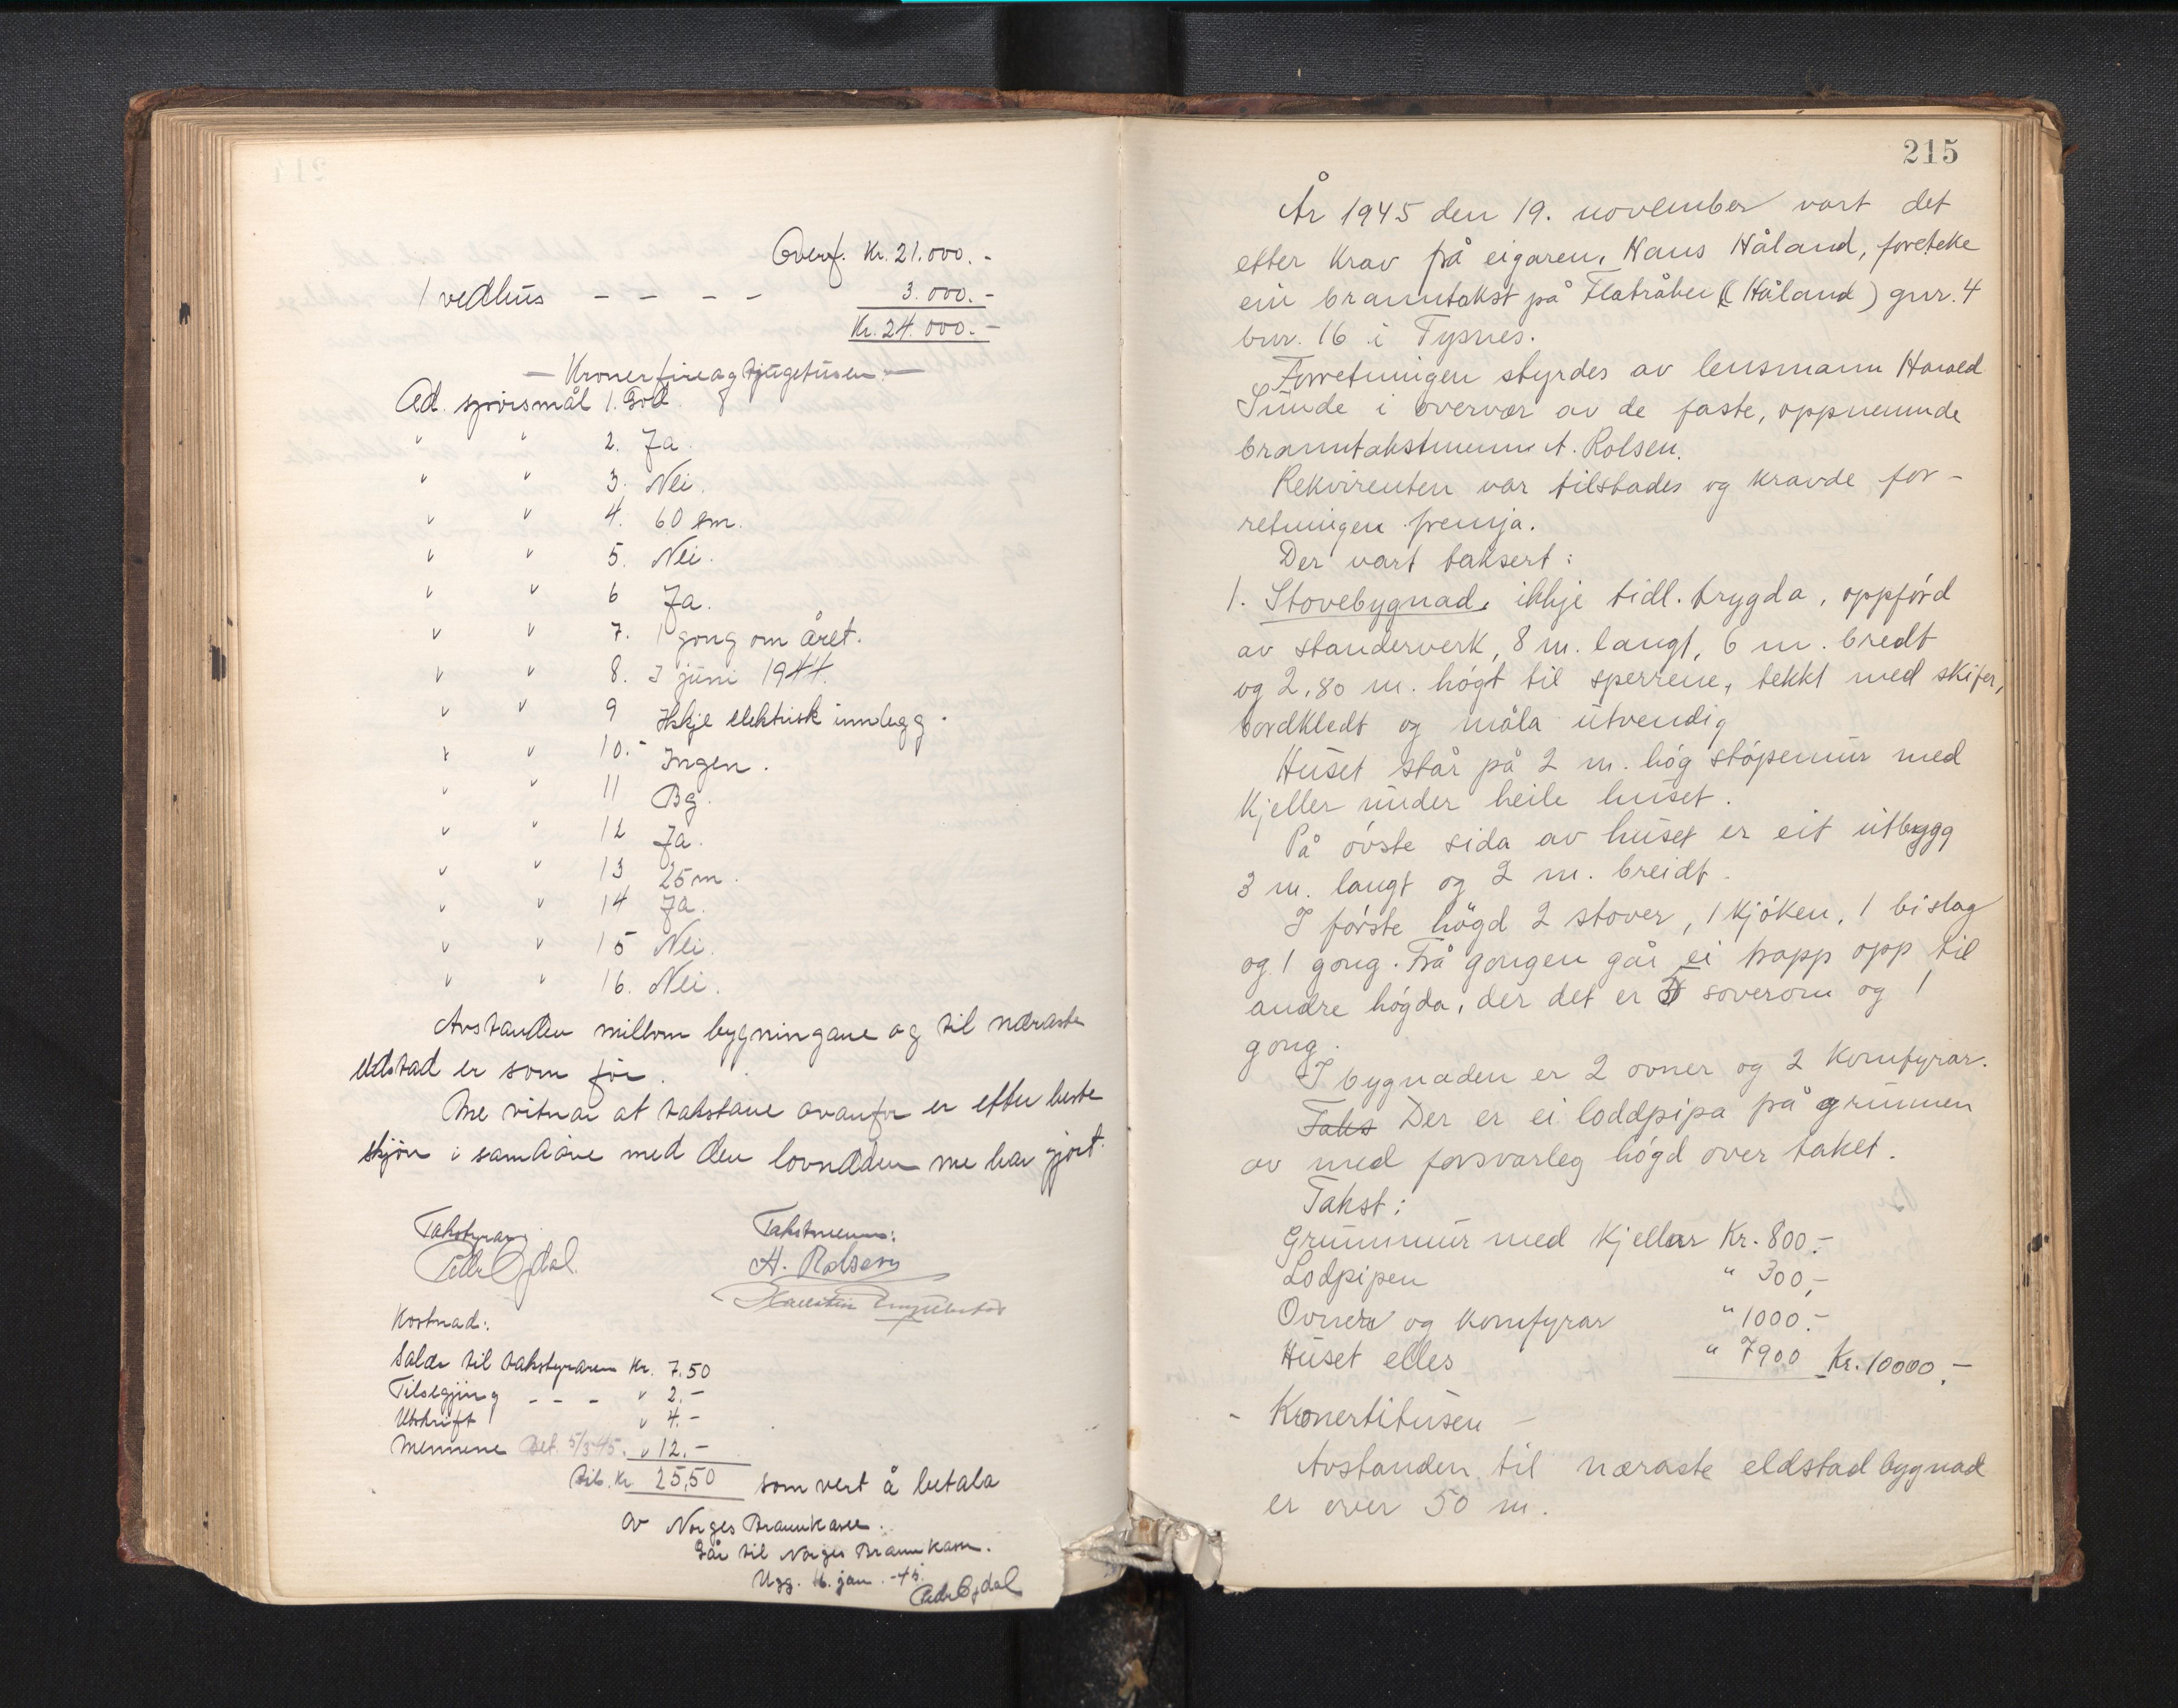 Overf. Kr. 21.000.-
1 vedhus - - - - 3.000.-
Kr. 24.000.-
- Kroner fireogtjugetusen -
Ad. spörsmål 1. God.
" " 2. Ja.
" " 3. Nei.
" " 4. 60 sm.
" " 5. Nei.
" " 6 Ja.
" " 7. 1 gong om året.
" " 8. I juni 1944.
" " 9 Ikkje elektrisk innlegg.
" " 10.- Ingen.
" " 11 Bg.
" " 12 Ja.
" " 13 25 m.
" " 14 Ja.
" " 15 Nei.
" " 16. Nei.
Avstanden millom bygningane og til næraste
eldstad er som för.
Me vitnar at takstane ovanfor er etter beste
skjön i samhöve med den lovnaden me har gjort.
Takstyrar: Takstmenn:
Peder Opdal. A. Rolsen
Kostnad:
Salær til takstyraren Kr. 7.50
Tilseging - - - " 2.-
Utskrift " 4.-
Mennene Bet. 5/3-45. " 12.-
Tils. Kr 25,50 som vert å betala
av Norges Brannkasse.
Går til Norges Brannkasse.
Ugg. 16. jan. -45.
Peder Opdal
215
År 1945 den 19. november vart det
etter krav frå eigaren, Hans Håland, foreteke
ein branntakst på Flatråker (Håland) gnr. 4
bnr. 16 i Tysnes.
Forretningen styrdes av lensmann Harald
Sunde i overvær av de faste, oppnemnde
branntakstmenn A. Rolsen.
Rekvirenten var tilstades og kravde for-
retningen fremja.
Der vart taksert:
1. Stovebygnad, ikkje tidl. trygda, oppförd
av standerverk, 8 m. langt, 6 m. bredt
og 2,80 m. högt til sperrene, tekkt med skifer,
bordkledt og måla utvendig
Huset står på 2 m. hög stöpemur med
kjeller under heile huset.
På övste sida av huset er eit utbygg
3 m. langt og 2 m. breidt.
I förste högd 2 stover, 1 kjöken, 1 bislag
og 1 gong. Frå gongen går ei trapp opp til
andre högda, der det er 3 soverom og 1
gong.
I bygnaden er 2 ovner og 2 komfyrar.
Taks Der er ei loddpipa på grunnen
av med forsvarleg högd over taket.
Takst:
Grunnmur med kjellar Kr. 800.-
Lodpipen " 300,-
Ovner og komfyrar " 1000.-
Huset elles " 7900 Kr. 10000,-
- Kronertitusen -
Avstanden til næraste eldstadbygnad
er over 50 m.